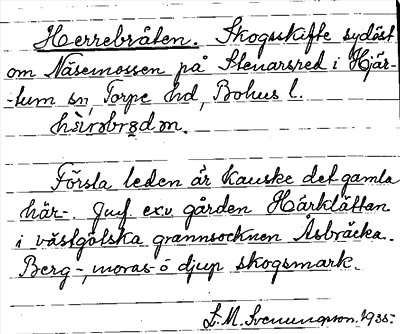 Herrebråten. Skogsskifte sydöst
om Näsemossen på Stenarsred i Hjär-
-tum sn, Torpe hd, Bohus l.
hæ̀rəbrɔdən.
Första leden är kanske det gamla
här-. Jmf. ex.v. gården Härklätten
i västgötska grannsocknen Åsbräcka.
Berg-, moras- o djup skogsmark.
L.M. Svenungson. 1935.